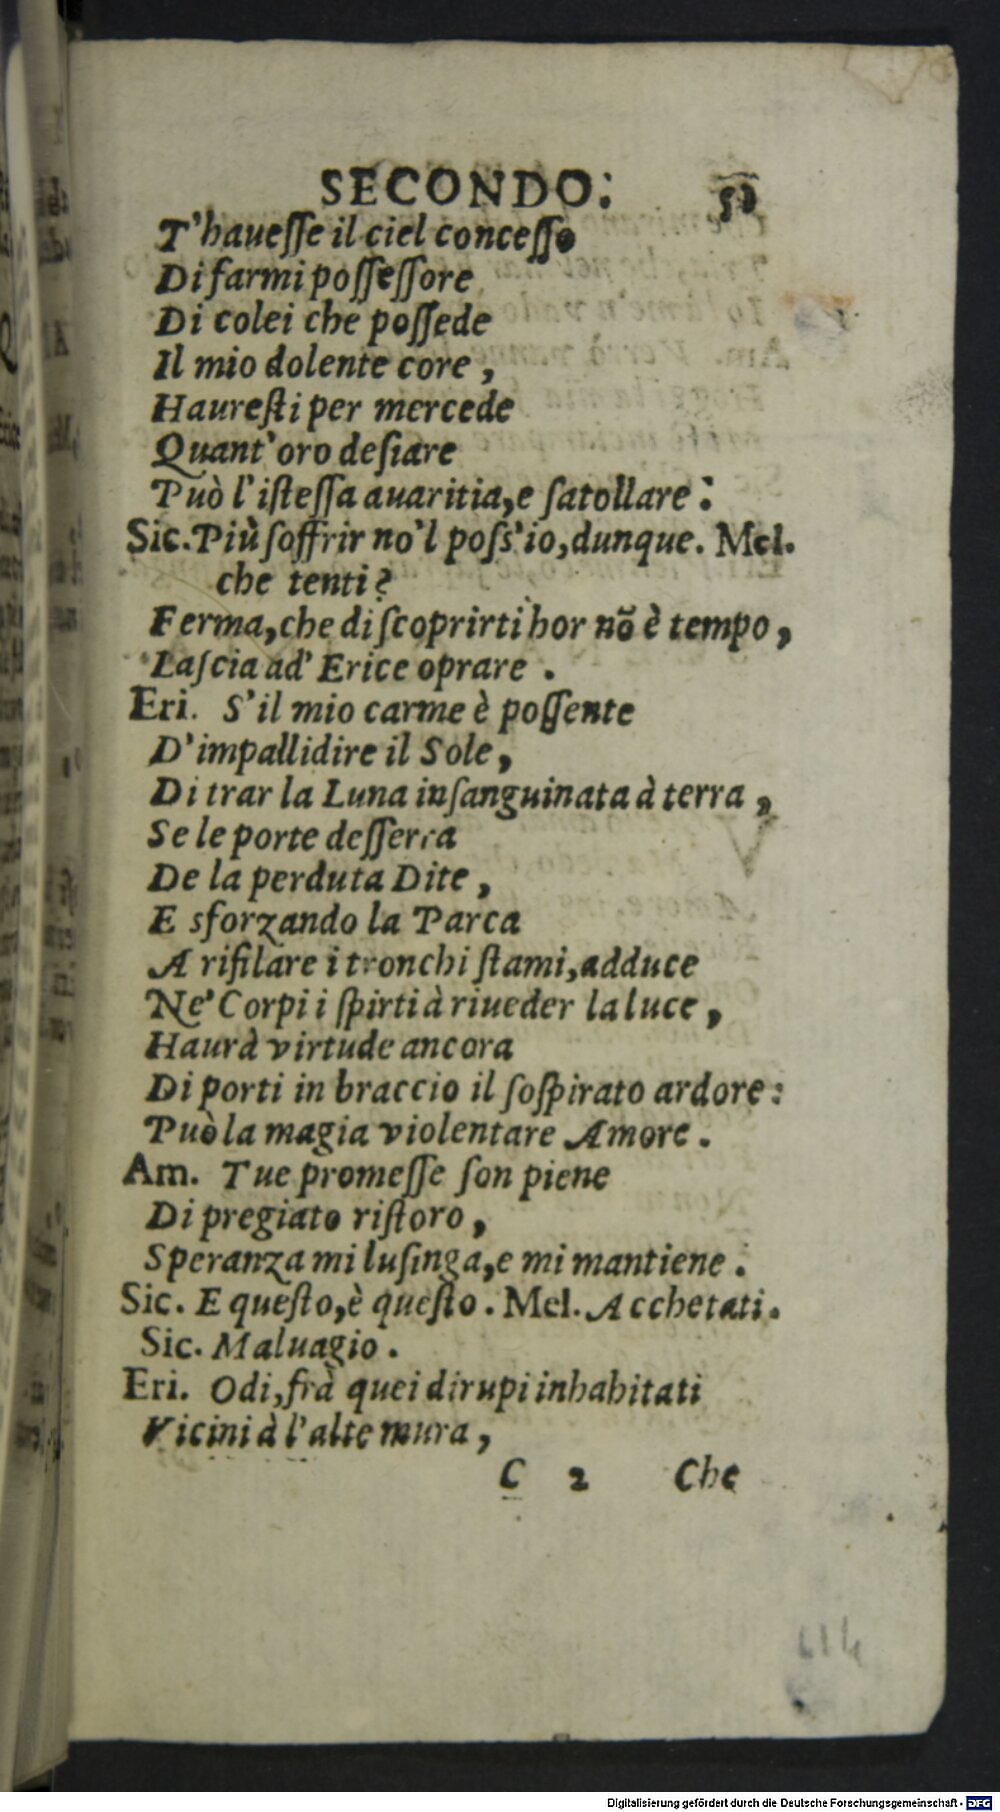 SECONDO.
T'hauesse il ciel concesso
Di farmi possessore
Di colei che possede
Il mio dolente core,
Hauresti per mercede
Quant' oro desiare
Può l'istessa auaritia, e satollare.
Sic. Più soffrir no'l poss'io, dunque. Mel.
che tenti?
Ferma, che di scoprirti hor nõ è tempo,
Lascia ad' Erice oprare.
Eri. S'il mio carme è possente
D'impallidire il Sole,
Di trar la Luna insanguinata à terra,
Se le porte desserra
De la perduta Dite,
E sforzando la Parca
A rifilare i tronchi stami, adduce
Ne' Corpi i spirti à riueder la luce,
Haurà virtude ancora
Di porti in braccio il sospirato ardore:
Può la magia violentare Amore.
Am. Tue promesse son piene
Di pregiato ristoro,
Speranza mi lusinga, e mi mantiene.
Sic. E questo, è questo. Mel. Acchetati.
Sic. Maluagio.
Eri. Odi, frà quei dirupi inhabitati
Vicini à l'alte mura,
C 2 Che
Digitalisierung gefördert durch die Deutsche Forschungsgemeinschaft - DFG